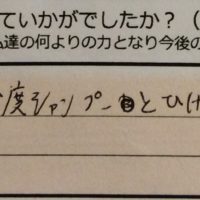 ていかがでしたか？（
私達の何よりの力となり今後の
度シャンプーとひげ